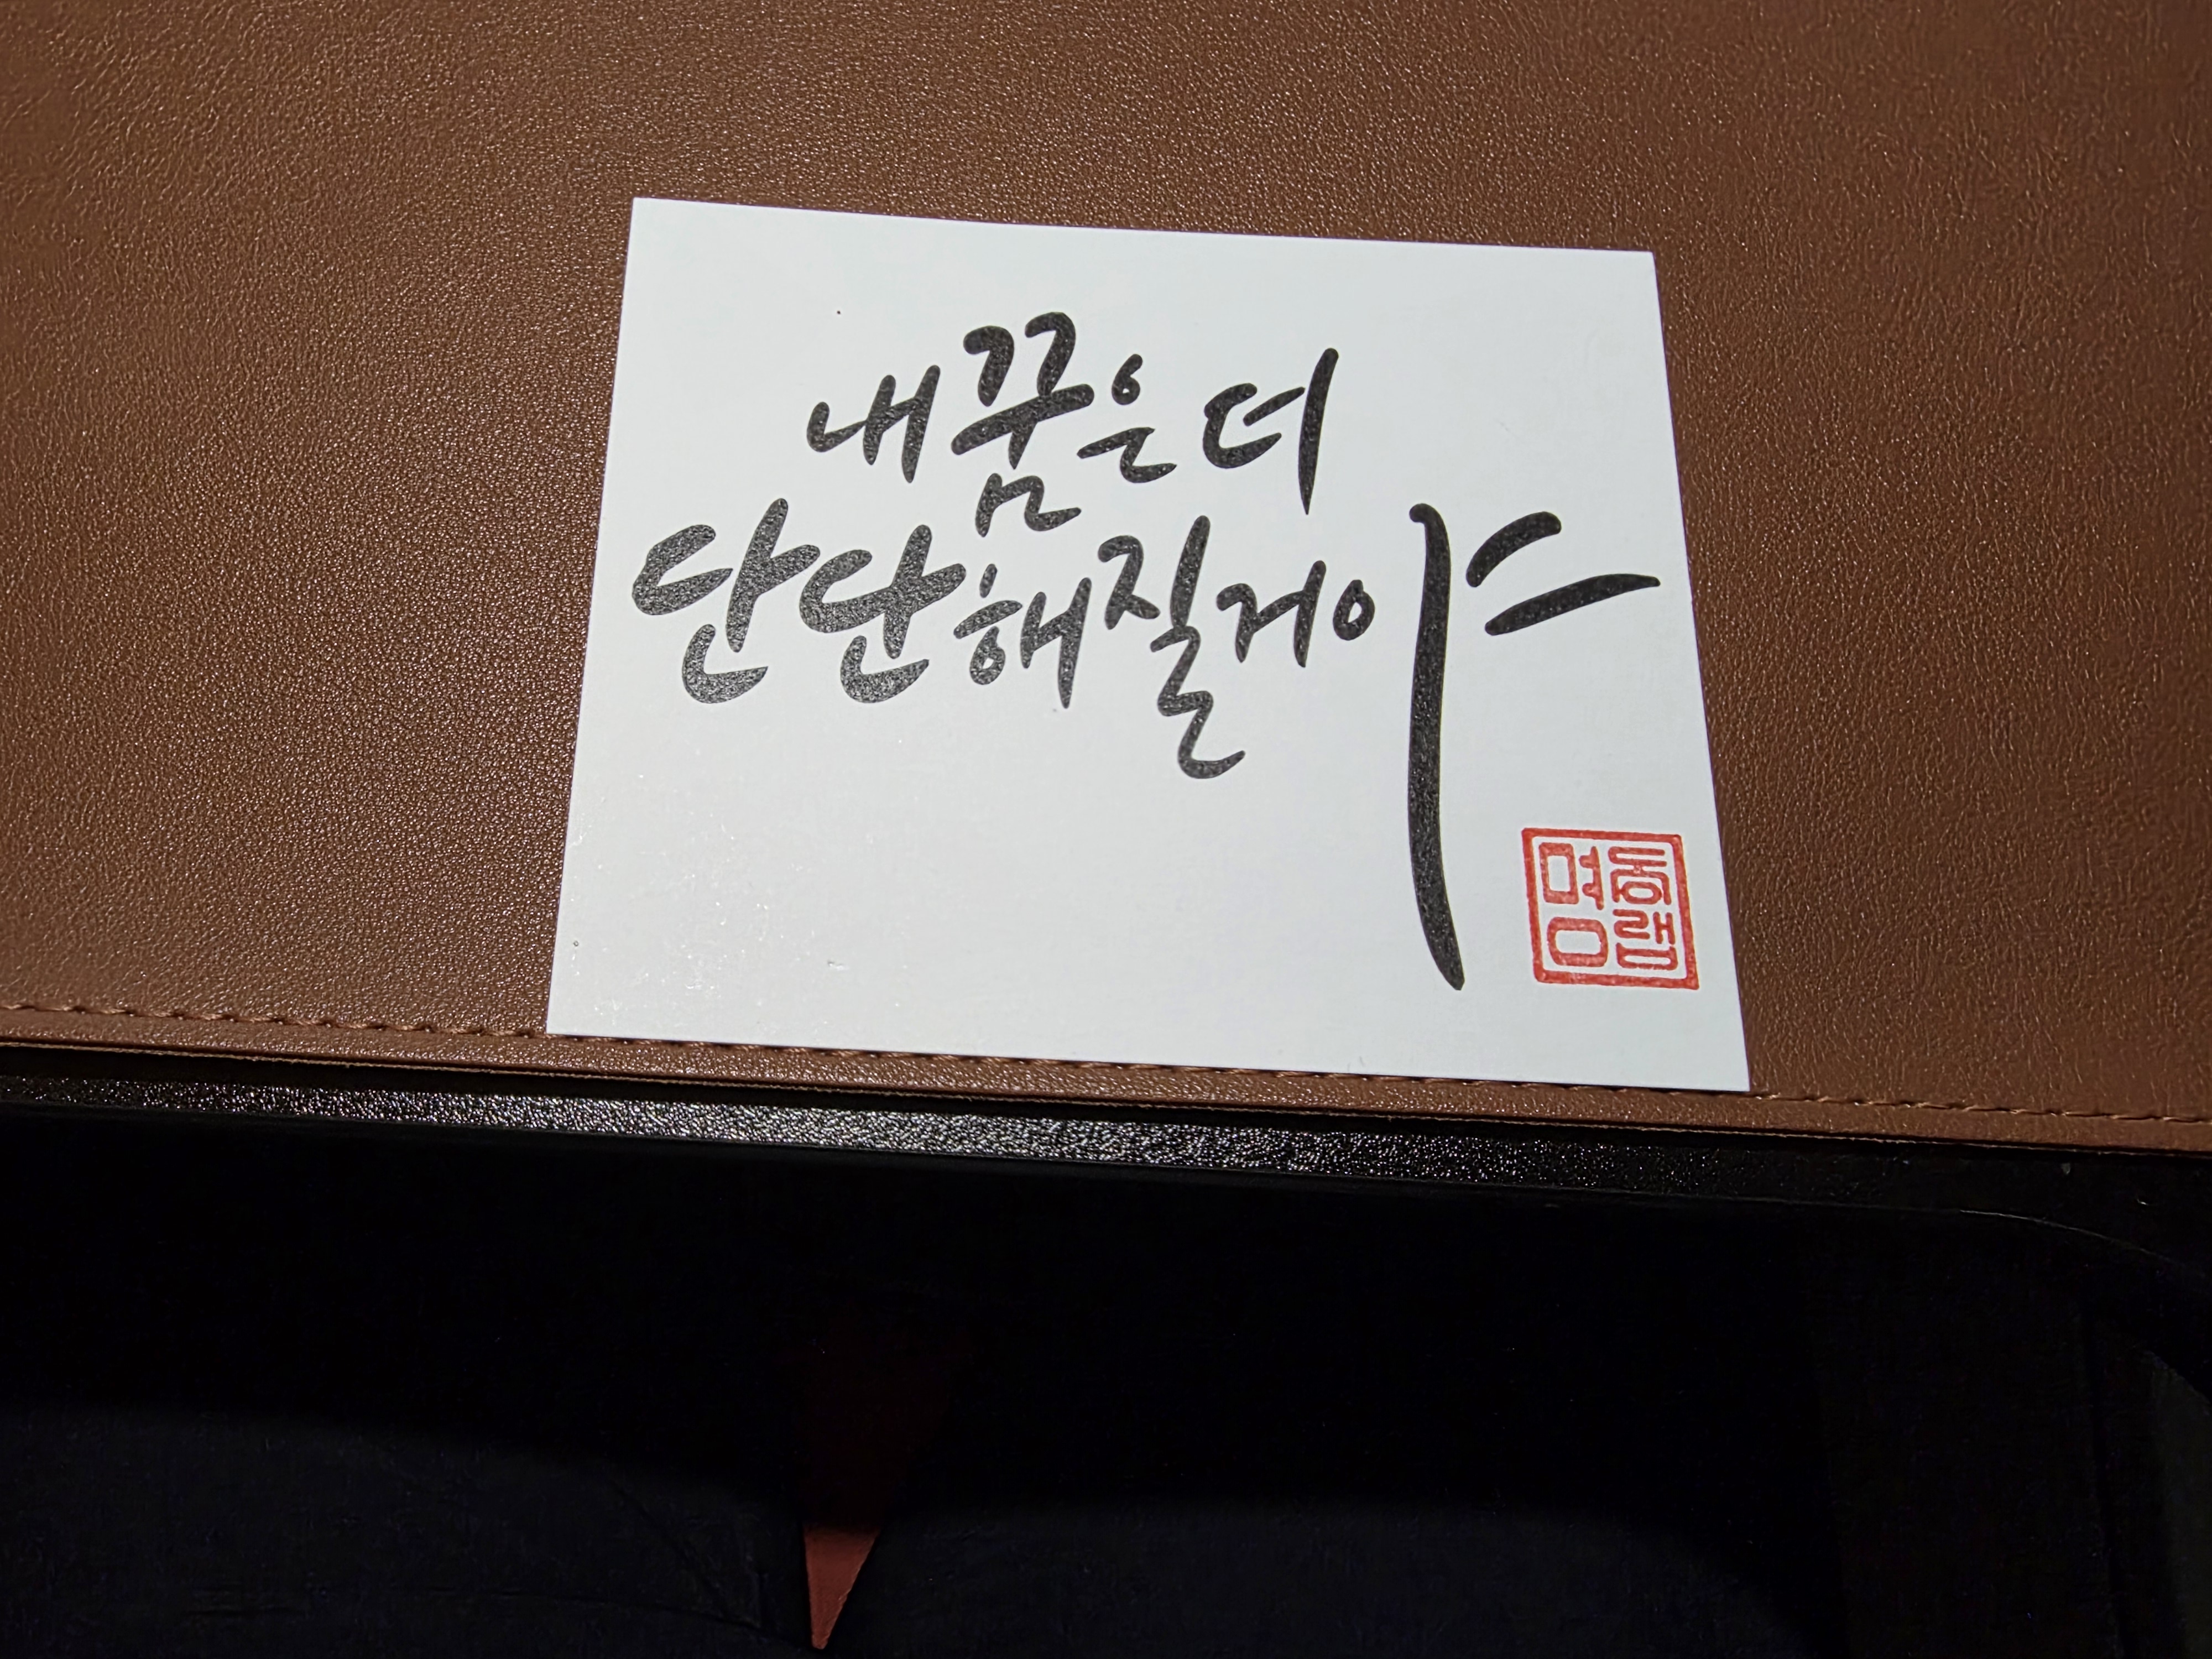 내 꿈은 더
단단해질거야
명동
음랩